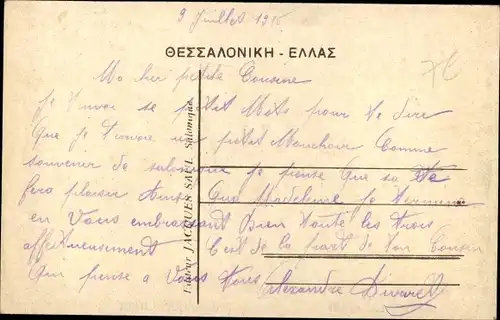 9 Juillet 1916
ΘΕΣΣΑΛΟΝΙΚΗ - ΕΛΛΑΣ
Ma cher petite Cousine
je t'envoi se petit Mots pour te dire
Que je t'envoie un petit Mouchoir Comme
souvenir de salonique je pense que sa te
fera plaisir Ainsi Que Madeleine
en Vous embrassant Bien toute les trois
affectueusement C'est de la part de ton Cousin
Qui pense a Vous tous Alexandre
Editeur JACQUES SAUL Salonique